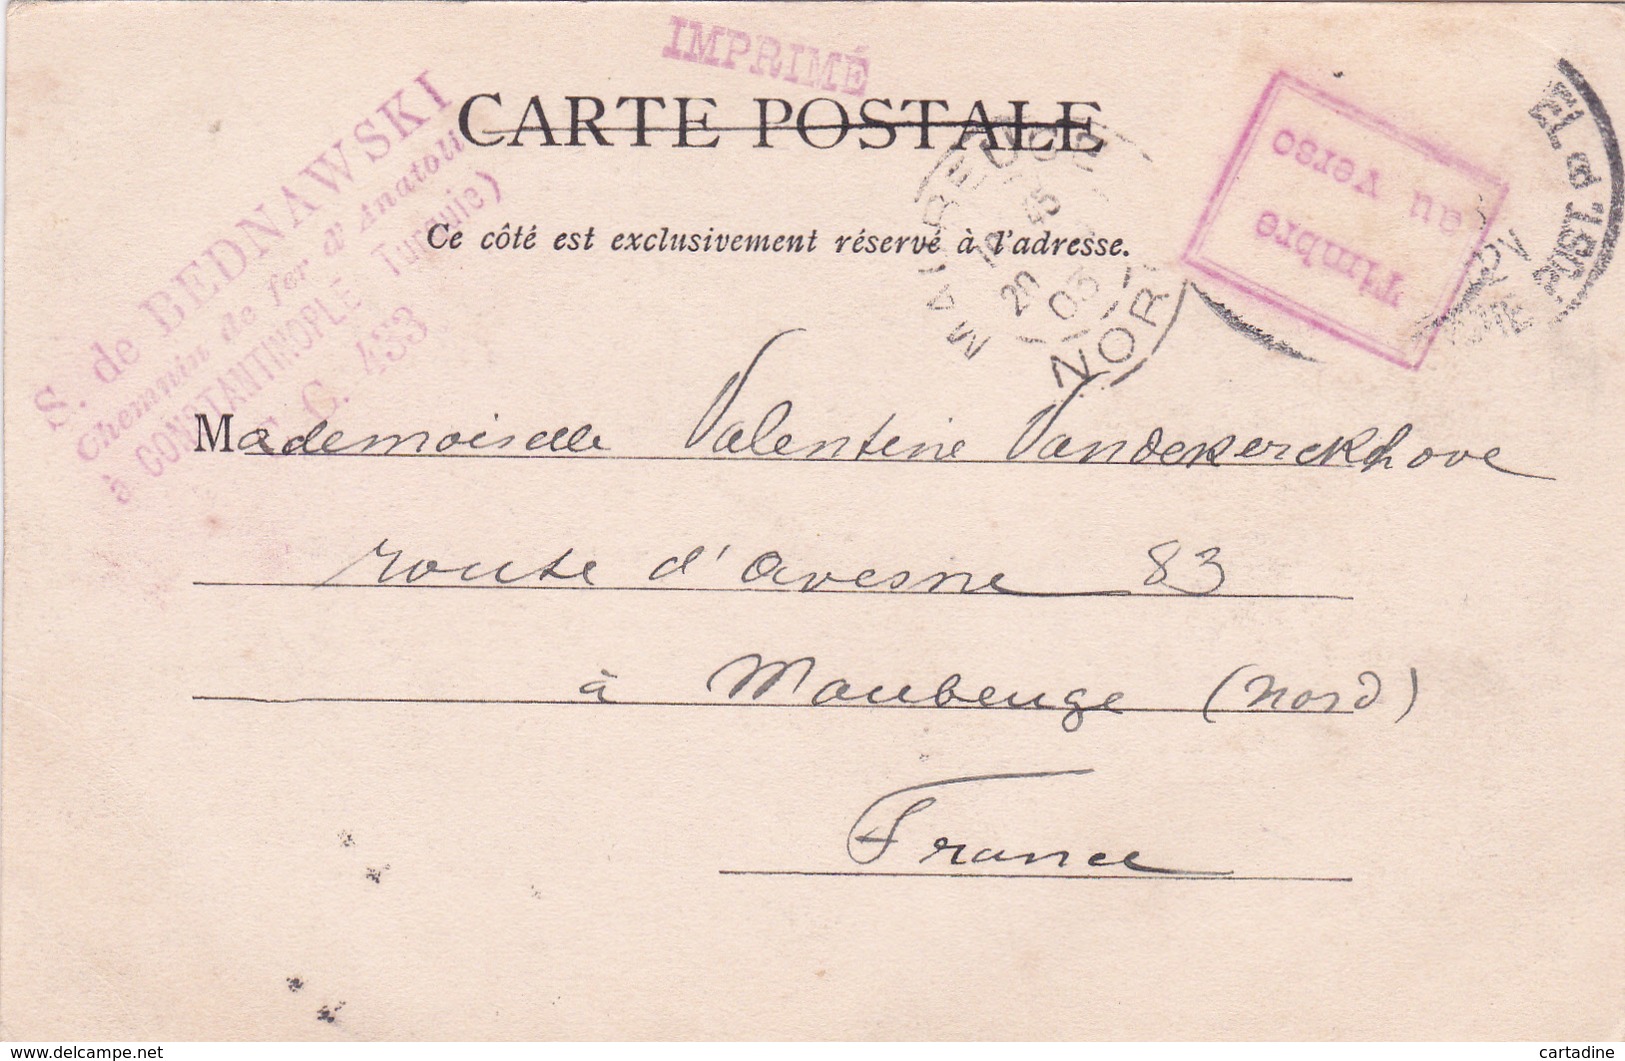 IMPRIMÉ
CARTE POSTALE
Ce côté est exclusivement réservé à l'adresse.
S. de BEDNAWSKI
Chemnin de fer d'Anatoli
à CONSTANTINOPLE Turquie)
C. G. 433
Timbre
au verso
MAUBEUGE
20
03
NORD
Mademoiselle Valentine Vandekerckhove
route d'avesne 83
à Maubeuge (Nord)
France
www.delcampe.net
cartadine